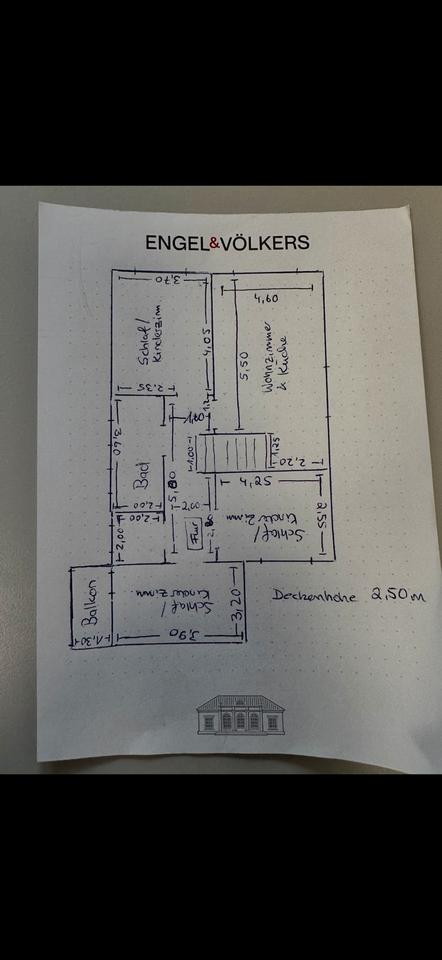 ENGEL&VÖLKERS
3,70
4,60
Schlaf/
Kinderzim.
4,05
5,50
Wohnzimmer
& Küche
2,35
1,20
1,2
3,60
Bad
5,80
1,00
1,25
2,20
4,25
2,00
2,00
2,00
2,00
Flur
2,80
Schlaf/
Kinderzimm.
2,55
Balkon
1,30
Schlaf/
Kinderzimm.
3,20
3,90
Deckenhöhe 2,50m